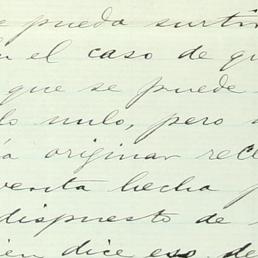 e pueda surti
en el caso de qu
que se puede
lo nulo, pero
a originar rec
venta hecha p
dispuesto de
ien dice eso, de